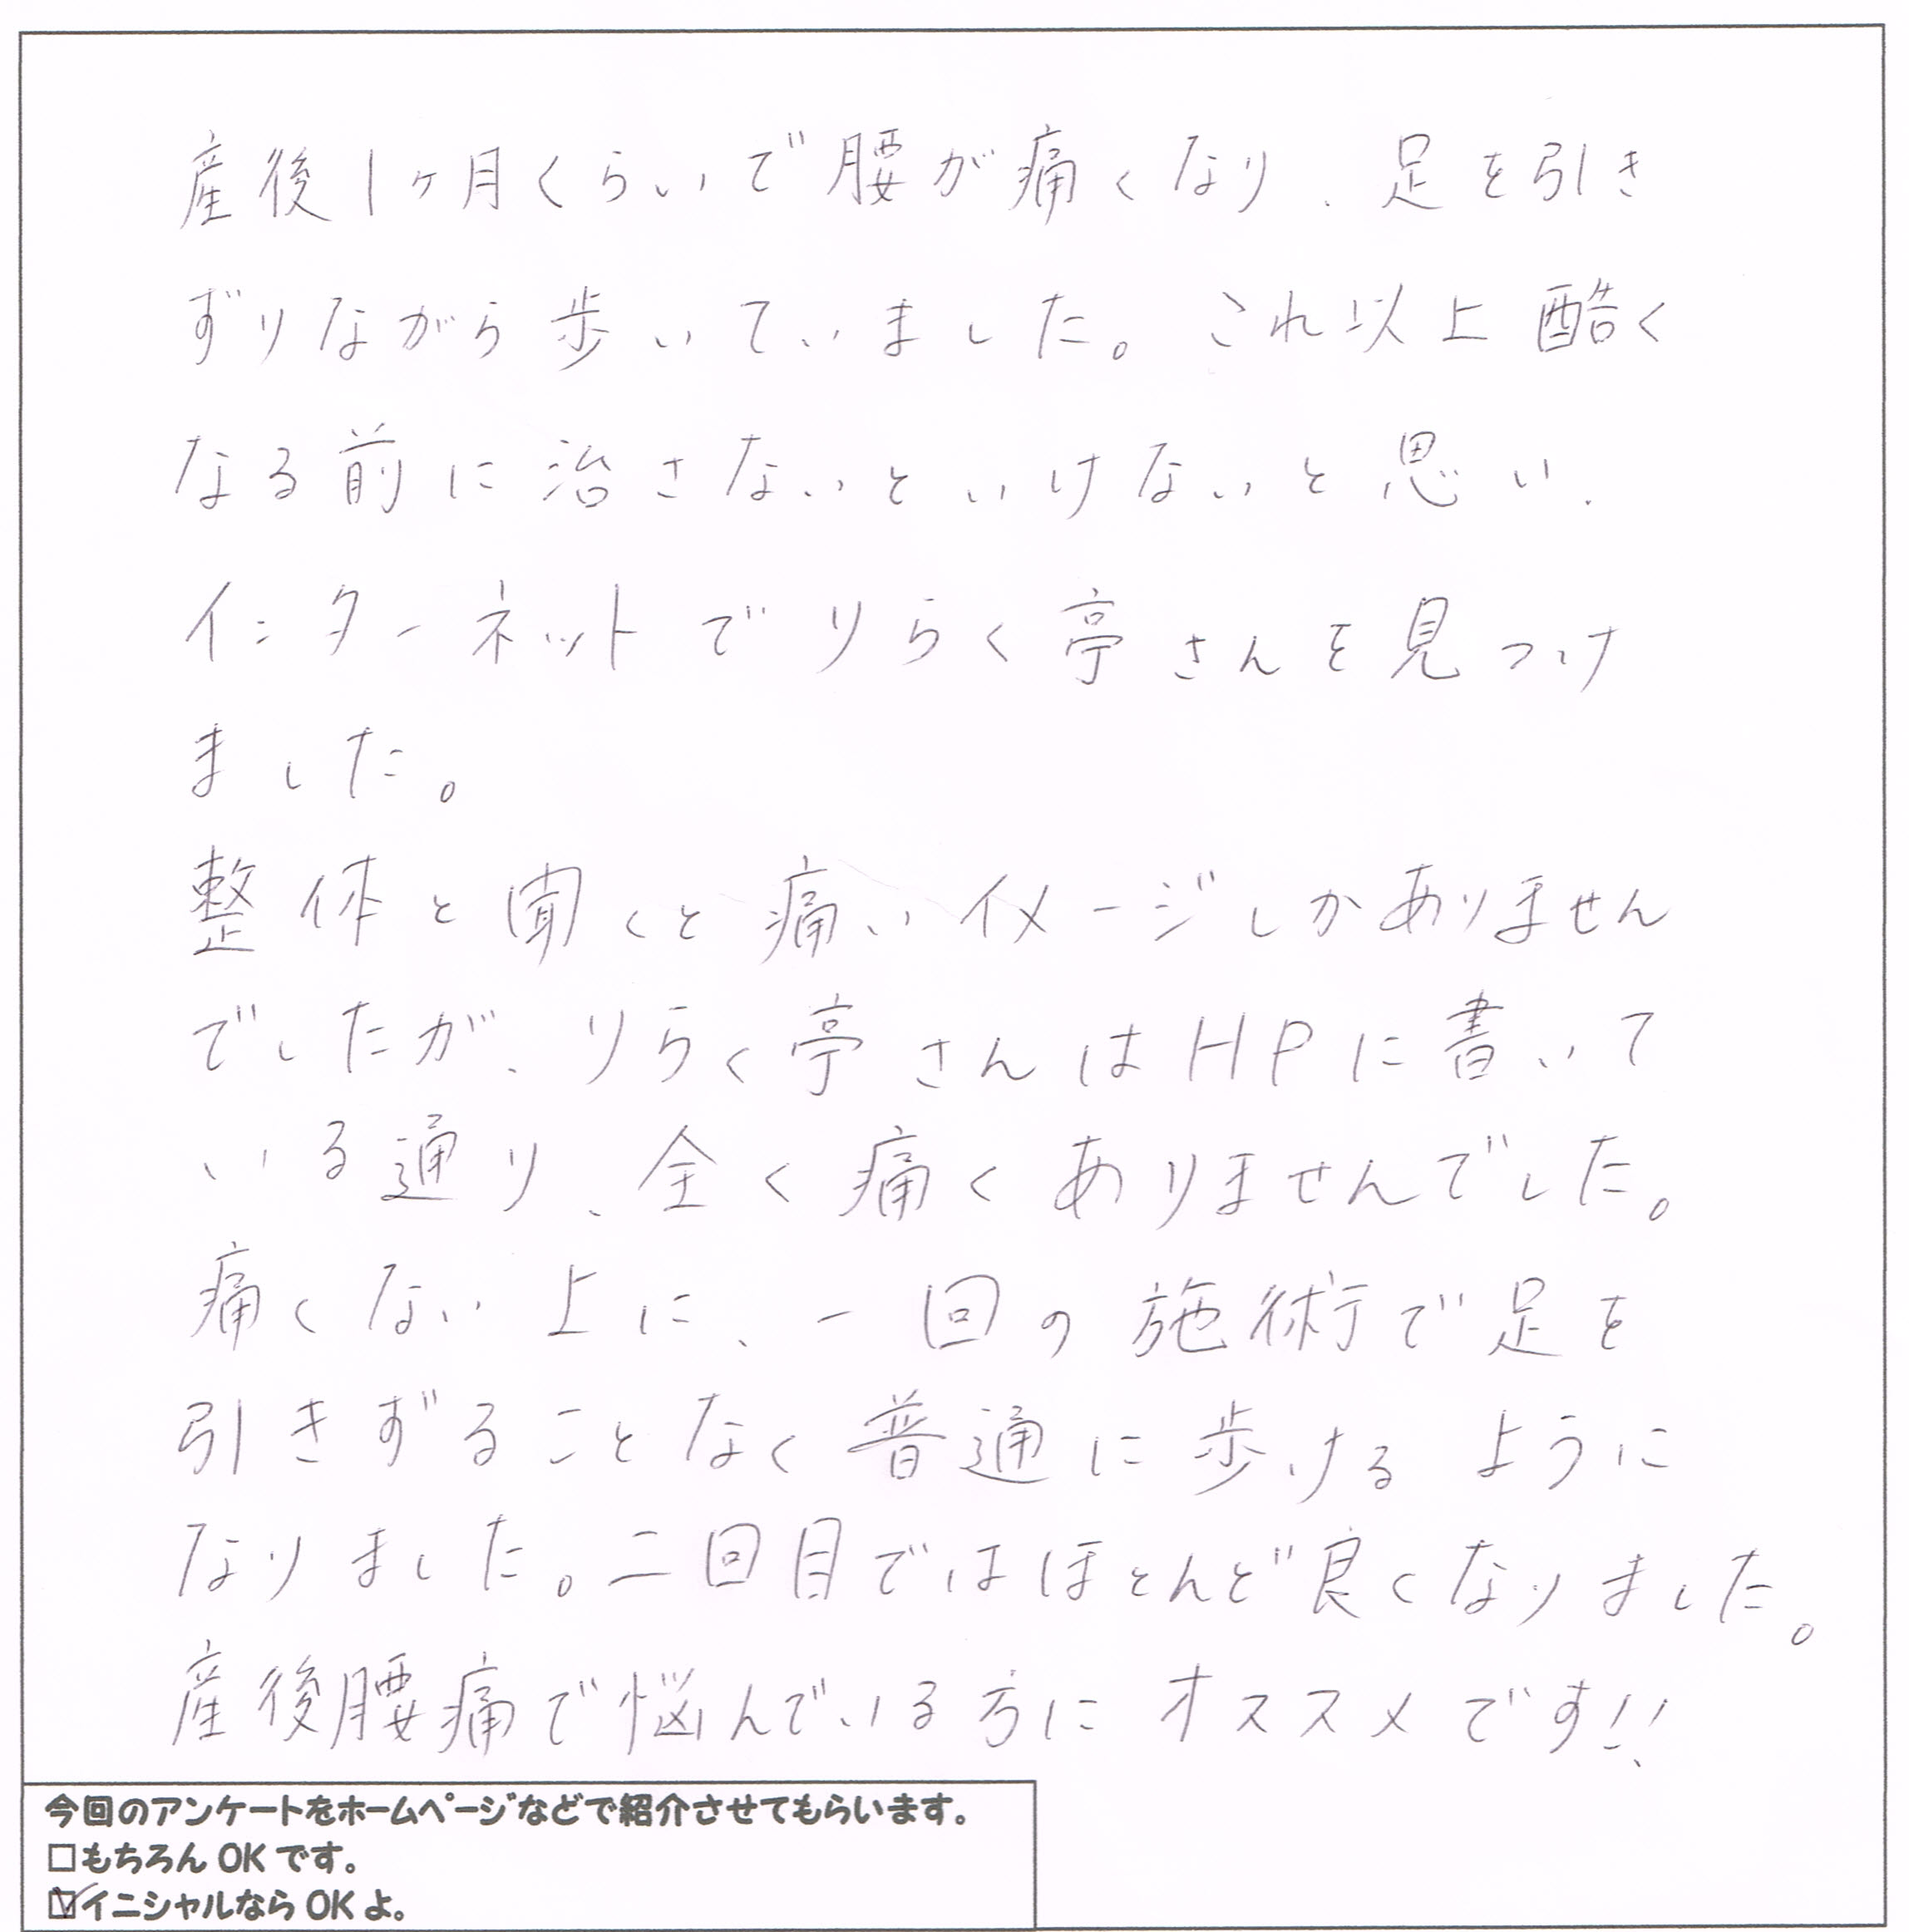 産後1ヶ月くらいで腰が痛くなり、足を引き
ずりながら歩いていました。これ以上酷く
なる前に治さないといけないと思い、
インターネットでりらく亭さんを見つけ
ました。
整体と聞くと痛いイメージしかありません
でしたが、りらく亭さんはHPに書いて
いる通り、全く痛くありませんでした。
痛くない上に、一回の施術で足を
引きずることなく普通に歩けるように
なりました。二回目ではほとんど良くなりました。
産後腰痛で悩んでいる方にオススメです!!
今回のアンケートをホームページなどで紹介させてもらいます。
□もちろんOKです。
☑イニシャルならOKよ。